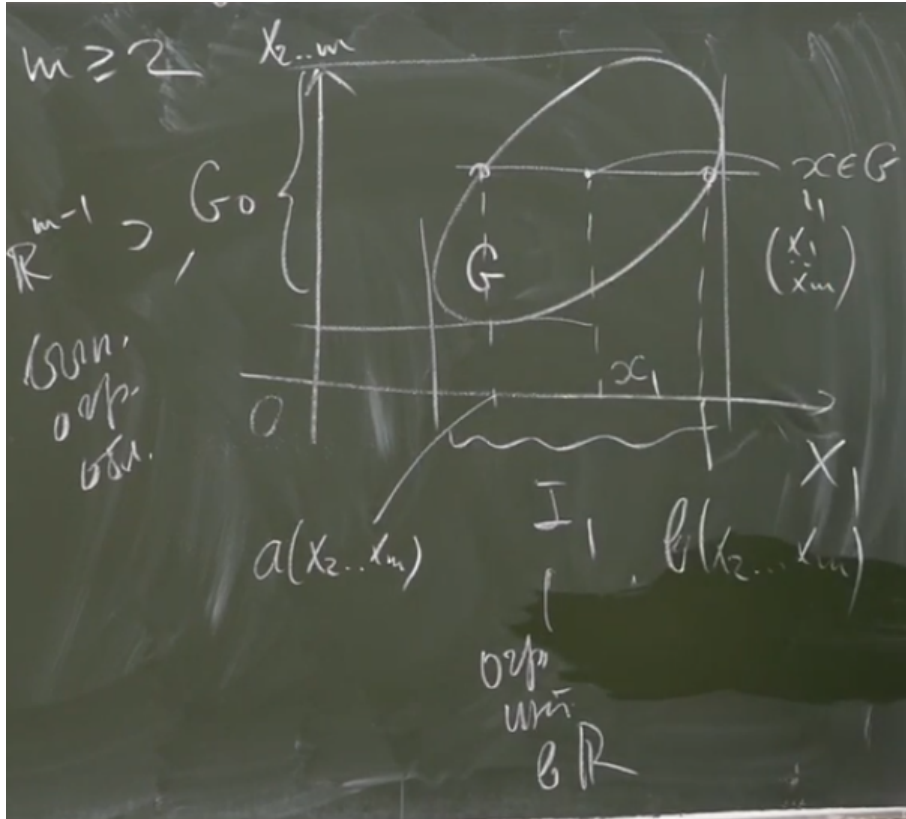 m ≥ 2
x₂..m
G₀
ℝᵐ⁻¹ ⊃
вып.
огр.
обл.
G
x ∈ G
=
(x₁
..
xₘ)
O
x₁
X₁
a(x₂..xₘ)
I₁
b(x₂...xₘ)
огр
инт.
в ℝ